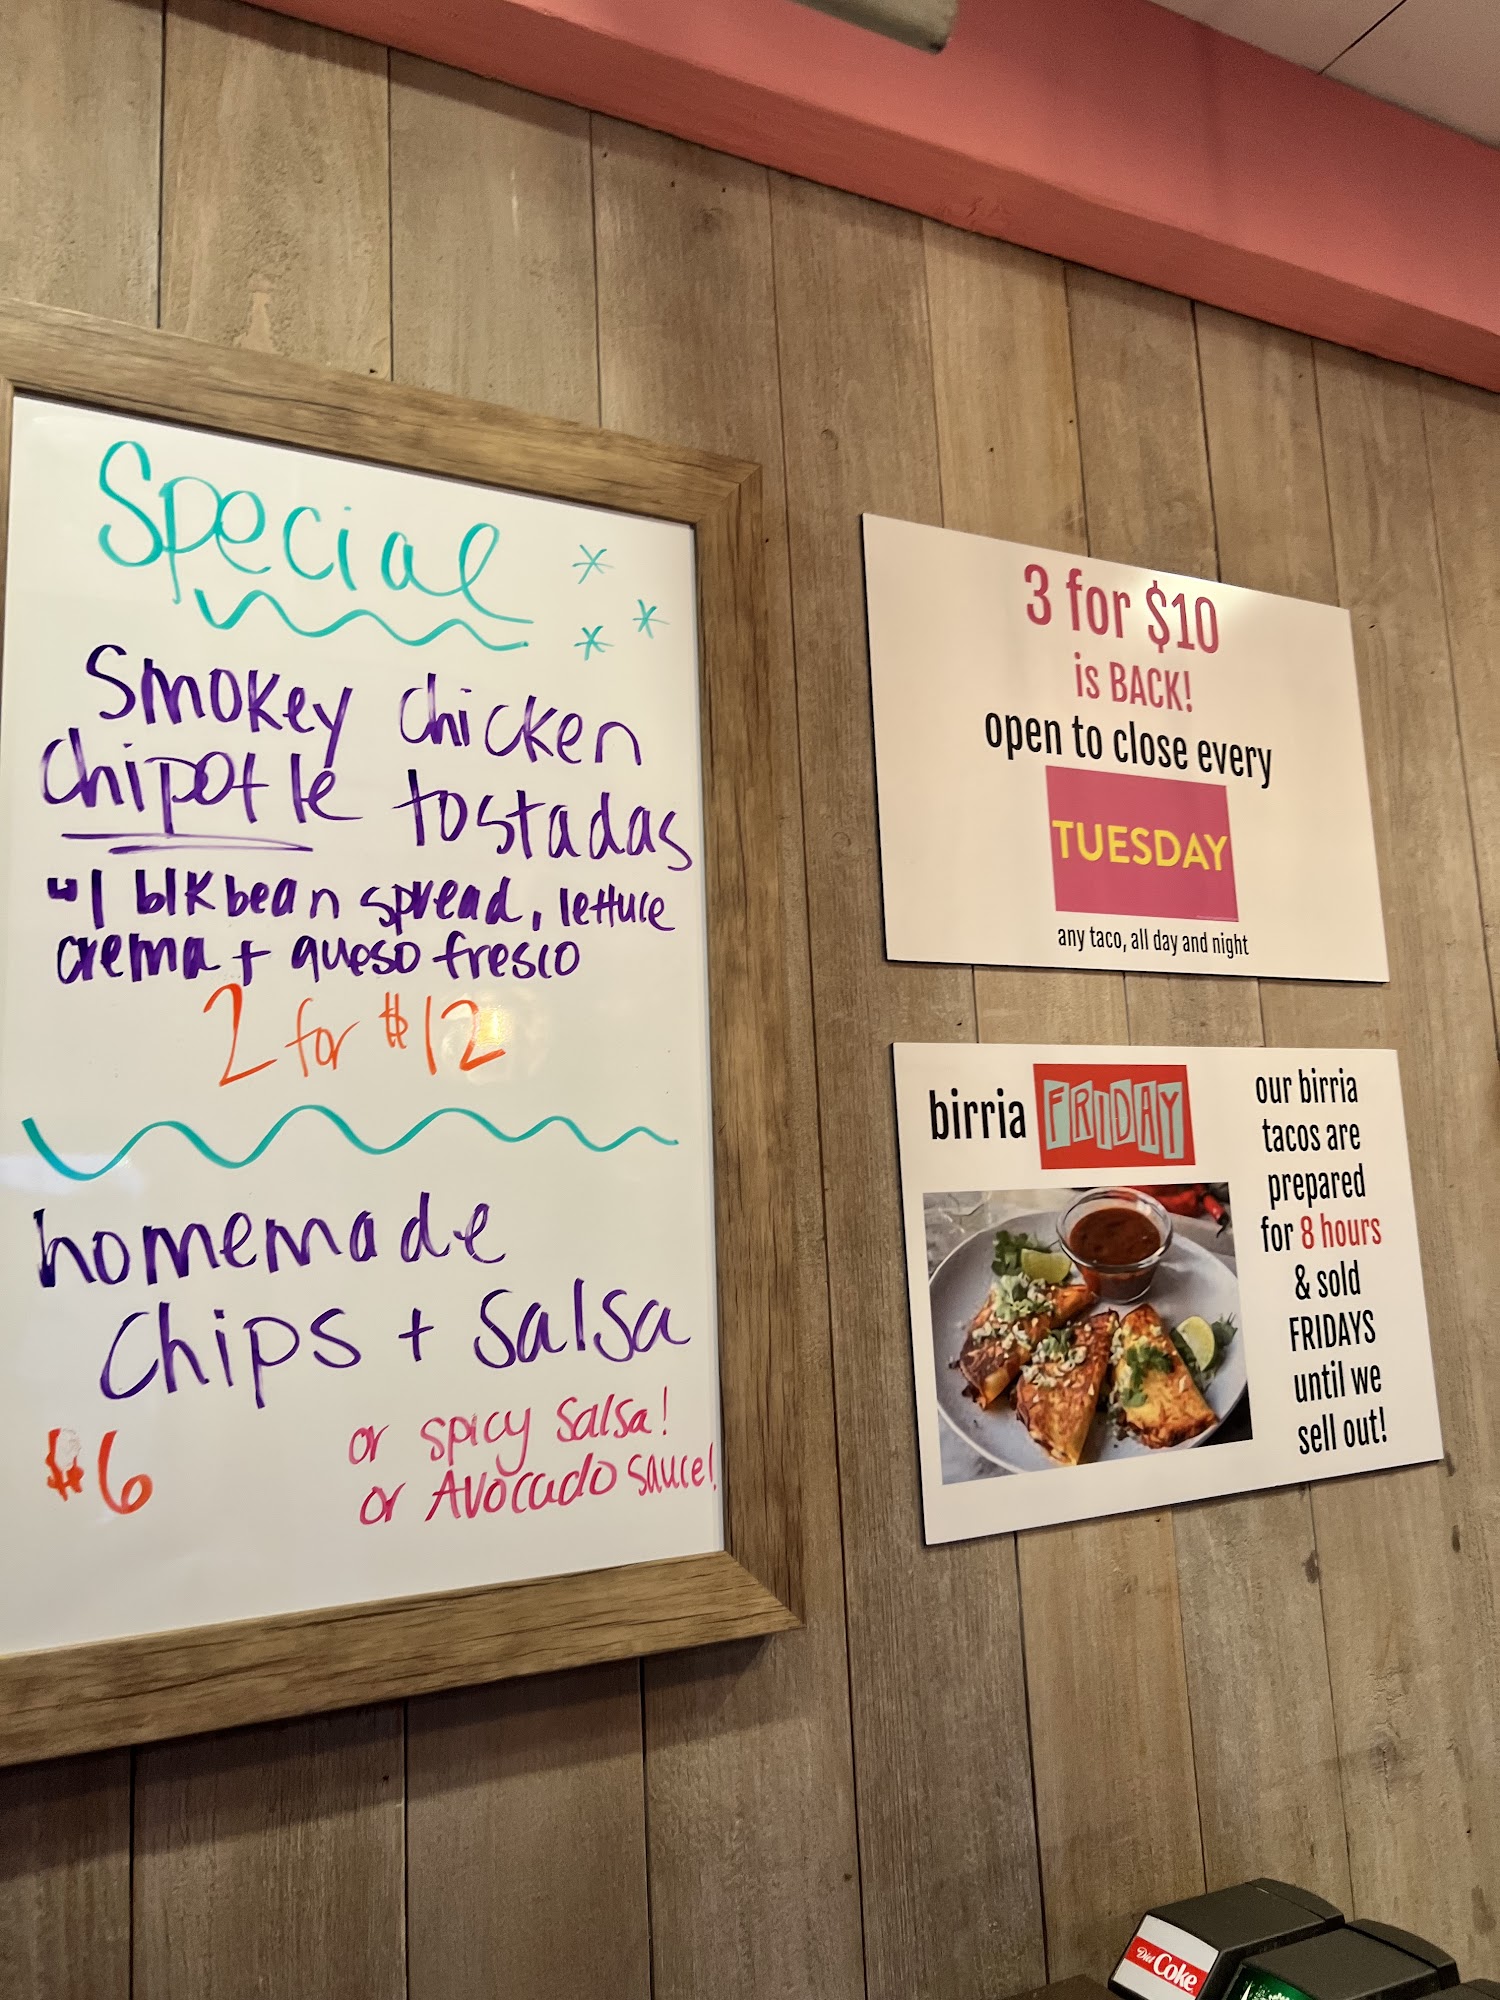 Special
Smokey chicken
chipotle tostadas
w/ blk bean spread, lettuce
crema + queso fresco
2 for $12
homemade
chips + salsa
$6
or spicy salsa!
or Avocado sauce!
3 for $10
is BACK!
open to close every
TUESDAY
any taco, all day and night
birria FRIDAY
our birria
tacos are
prepared
for 8 hours
& sold
FRIDAYS
until we
sell out!
Diet Coke